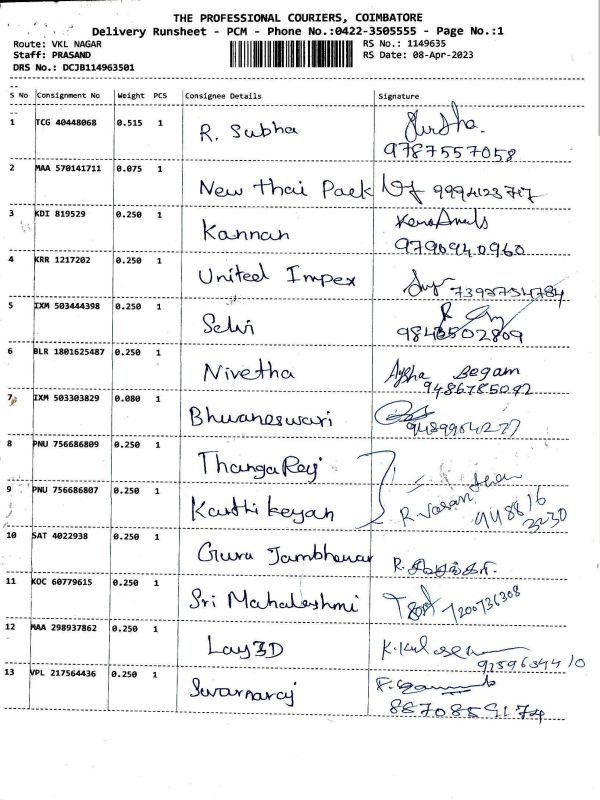 THE PROFESSIONAL COURIERS, COIMBATORE
Delivery Runsheet - PCM - Phone No.:0422-3505555 - Page No.:1
Route: VKL NAGAR
RS No.: 1149635
Staff: PRASAND
RS Date: 08-Apr-2023
DRS No.: DCJB114963501
S No Consignment No Weight PCS Consignee Details Signature
1 TCG 40448068 0.515 1 R. Subha
9787557058
2 MAA 570141711 0.075 1 New Thai Pack
3 KDI 819529 0.250 1 Kannan
9790940960
4 KRR 1217202 0.250 1 United Impex
5 IXM 503444398 0.250 1 Selvi
9843502809
6 BLR 1801625487 0.250 1 Nivetha Aysha Begam
9486785092
7 IXM 503303829 0.080 1 Bhuvaneswari
8 PNU 756686809 0.250 1 ThangaRaj
9 PNU 756686807 0.250 1 Karthikeyan R. Vasanthan
948816
3230
10 SAT 4022938 0.250 1 Guru Jambheswar
11 KOC 60779615 0.250 1 Sri Mahalashmi
7200736308
12 MAA 298937862 0.250 1 Lay3D
13 VPL 217564436 0.250 1 Swarnaraj
8870859174